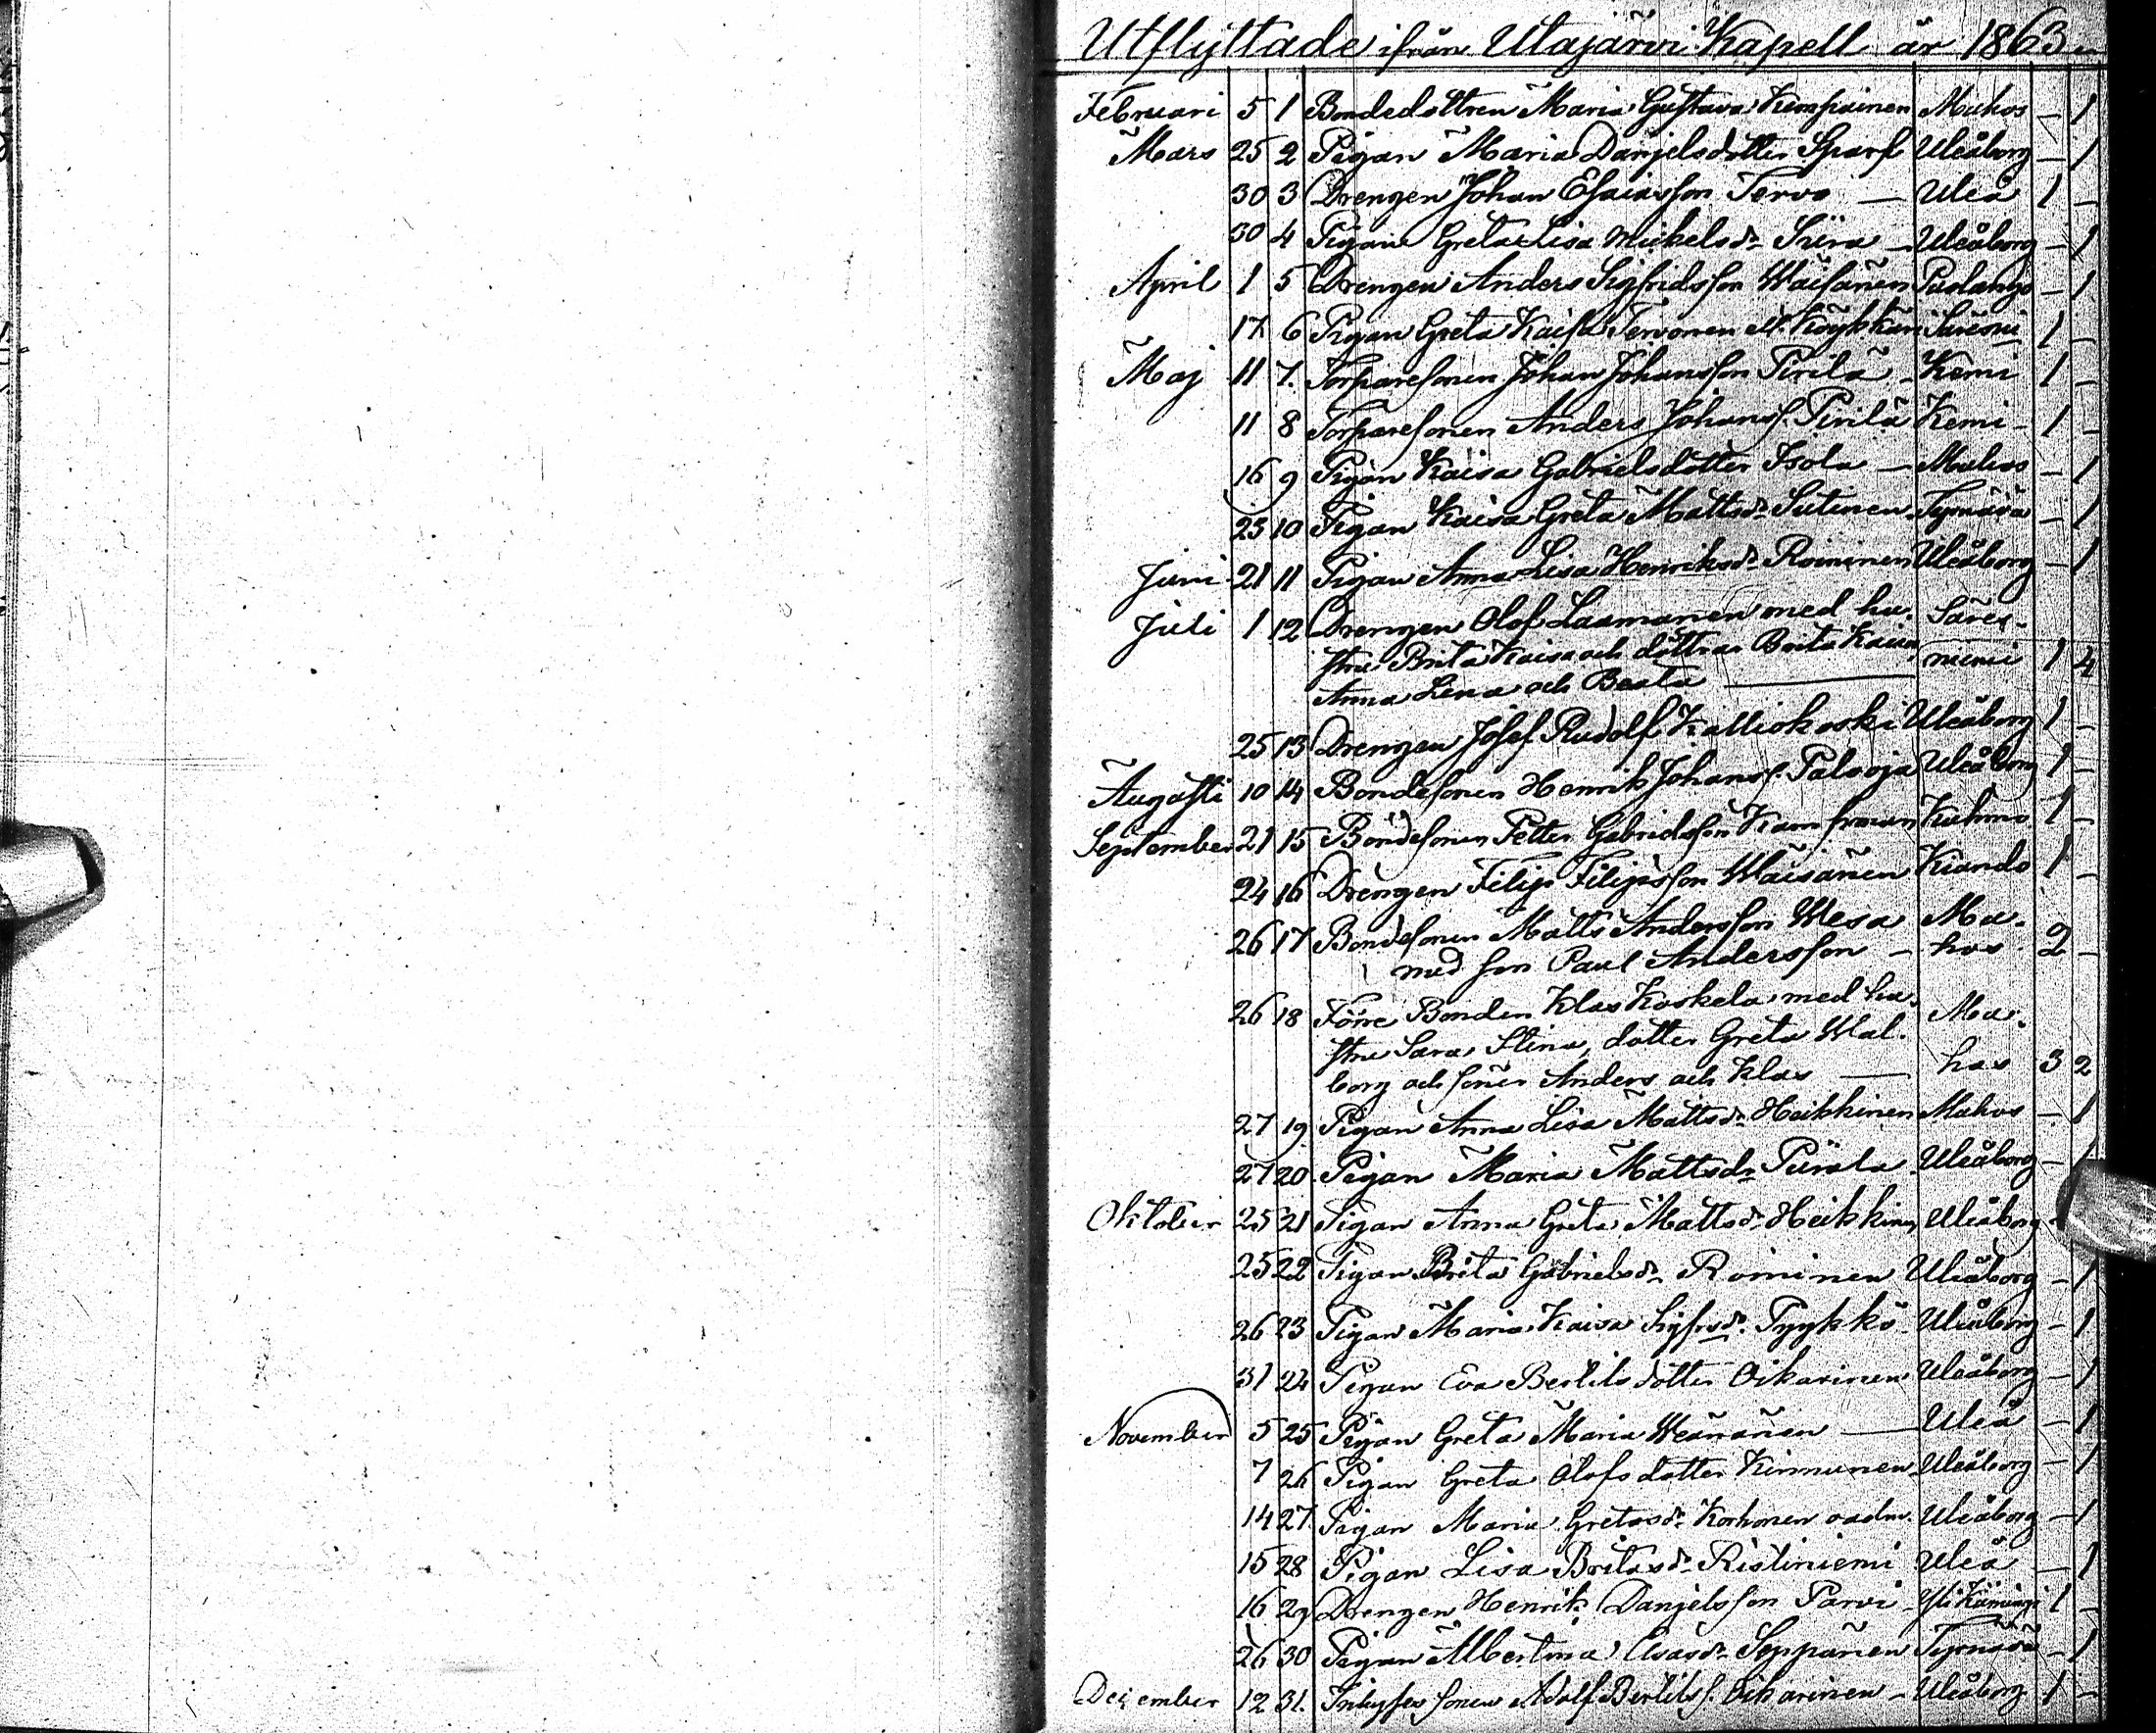 Utflyttade ifrån Utajärvi Kapell år 1863
Februari 5 1 Bondedottren Maria Gustava Kemppainen Muhos — 1
Mars 25 2 Pigan Maria Danjelsdotter Sparf Uleåborg — 1
30 3 Drengen Johan Esaiasson Tervo — Uleå 1 —
30 4 Pigan Greta Lisa Mickelsdr Siira — Uleåborg — 1
April 1 5 Drengen Anders Sigfridsson Wäisänen Puolango — 1
17 6 Pigan Greta Kaisa Tervonen 1 —
Maj 11 7. Torparesonen Johan Johansson Pirilä — Kemi 1 —
11 8 Torparesonen Anders Johanss. Pirilä Kemi — 1 —
16 9 Pigan Kaisa Gabrielsdotter Isola — Muhos — 1
23 10 Pigan Kaisa Greta Mattsdr Sutinen Tyrnävä — 1
Juni 21 11 Pigan Anna Lisa Henriksdr Roininen Uleåborg — 1
Juli 1 12 Drengen Olof Laamanen med hu- Säräi-
stru Brita Kaisa och döttrar Brita Kaisa, niemi 1 4
Anna Lena och Beata —
25 13 Drengen Josef Rudolf Kalliokoski Uleåborg 1 —
Augusti 10 14 Bondesonen Henrik Johanss. Palooja Uleåborg 1 —
September 21 15 Bondesonen Petter Gabrielsson Kuhmo 1 —
24 16 Drengen Filip Filipsson Wäisänen Kiando 1 —
26 17 Bondesonen Matts Andersson Wesa Mu-
med son Paul Andersson — hos 2 —
26 18 Förre Bonden Klas Koskela med hu- Mu-
stru Sara Stina, dotter Greta Wal-
borg och söner Anders och Klas — hos 3 2
27 19. Pigan Anna Lisa Mattsdr Heikkinen Muhos — 1
27 20. Pigan Maria Mattsdr Uleåborg —
Oktober 25 21 Pigan Anna Greta Mattsdr Heikkinen Uleåborg
25 22 Pigan Brita Gabrielsdr Roininen Uleåborg — 1
26 23 Pigan Maria Kaisa Sigfrsdr Pyykkö Uleåborg — 1
31 24 Pigan Eva Bertilsdotter Oikarinen Uleåborg — 1
November 5 25 Pigan Greta Maria Wäänänen — Uleå — 1
7 26 Pigan Greta Olofsdotter Kinnunen Uleåborg — 1
14 27 Pigan Maria Gretasdr Korhonen Uleåborg — 1
15 28 Pigan Lisa Britasdr Ristiniemi Uleå — 1
16 29 Drengen Henrik Danjelsson Parvi Yli Kiimingi 1 —
26 30 Pigan Albertina Evasdr Seppänen Tyrnävä — 1
December 12 31. Inhyses sonen Adolf Bertilss. Oikarinen — Uleåborg 1 —